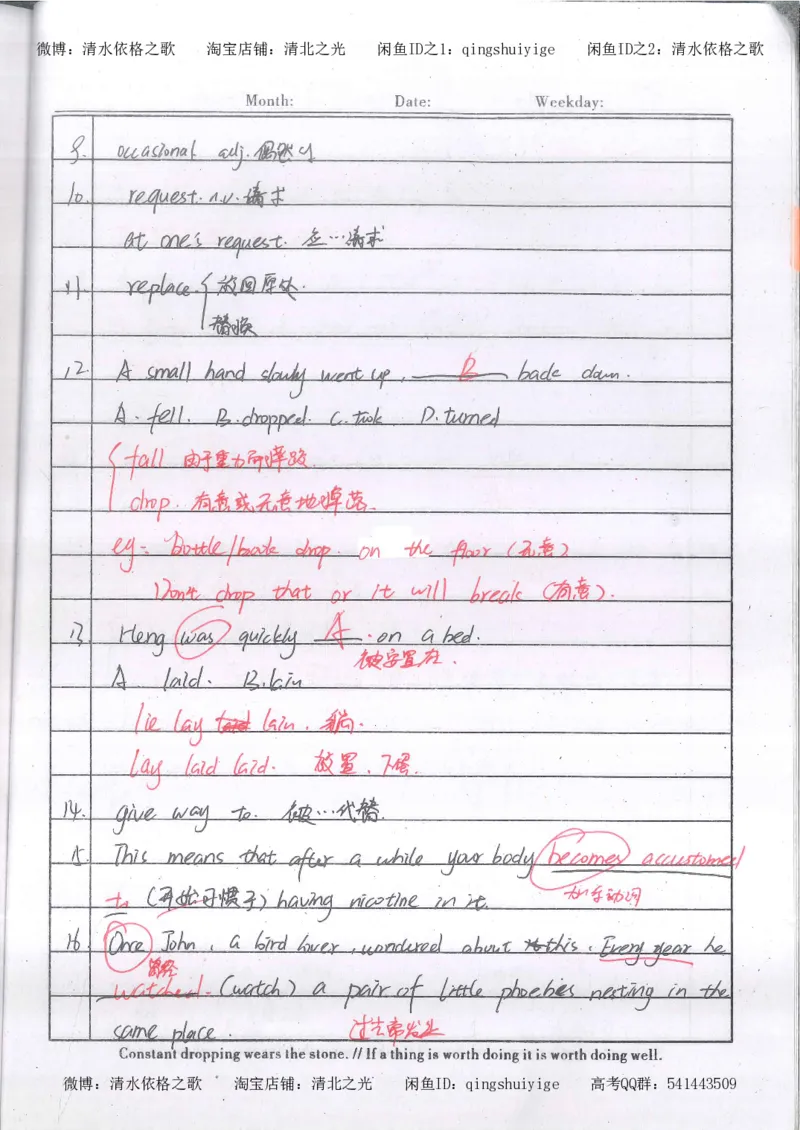 微博：清水依格之歌 淘宝店铺：清北之光 闲鱼ID之1：qingshuiyige 闲鱼ID之2：清水依格之歌
Month: Date: Weekday:
9. occasional adj. 偶然的
10. request. n.v. 请求
at one's request. 应…请求
11. replace. { 放回原处.
替换
12. A small hand slowly went up, B back down.
A. fell. B. dropped. C. took D. turned
{ fall 由于重力而掉落.
drop. 有意或无意地掉落.
eg: Bottle/book drop. on the floor (无意)
Don't drop that or it will break (有意).
13. Heng was quickly A. on a bed.
被安置在.
A. laid. B. lain
lie lay lain. 躺.
lay laid laid. 放置. 下蛋.
14. give way to. 被…代替.
15. This means that after a while your body becomes accustomed
to (开始习惯于) having nicotine in it.
加系动词
16. Once John, a bird lover, wondered about this. Every year he
曾经
watched. (watch) a pair of little phoebes nesting in the
same place. 过去常发生
Constant dropping wears the stone. // If a thing is worth doing it is worth doing well.
微博：清水依格之歌 淘宝店铺：清北之光 闲鱼ID：qingshuiyige 高考QQ群：541443509